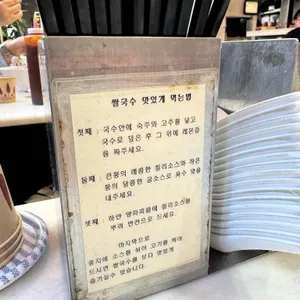 쌀국수 맛있게 먹는법
첫째 : 국수안에 숙주와 고추를 넣고
국수로 덮은 후 그 위에 레몬즙
을 짜주세요.
둘째 : 왼쪽의 매콤한 칠리소스와 작은
통의 달콤한 굴소스로 육수 맛을
내주세요.
셋째 : 하얀 양파피클에 칠리소스를
뿌려 반찬으로 드세요.
마지막으로
종지에 소스를 섞어 고기를 찍어
드시면 쌀국수를 보다 맛있게
즐기실수 있습니다.